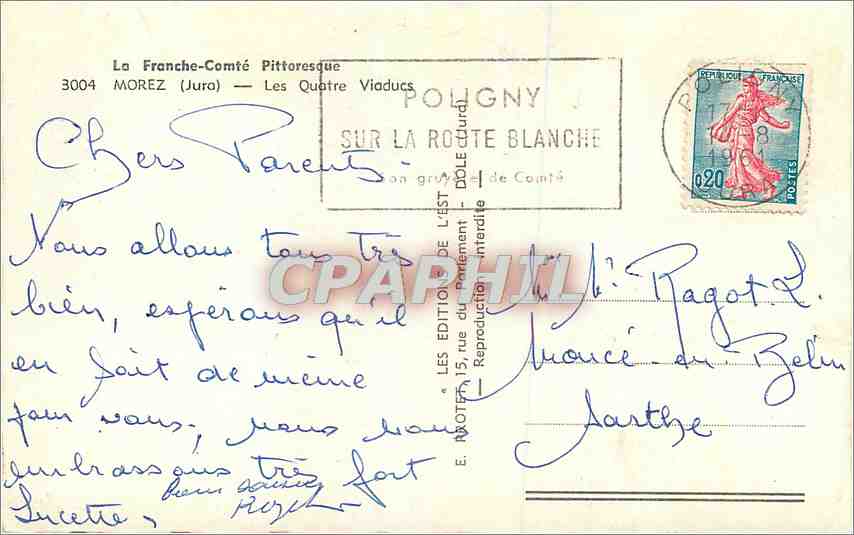 La Franche-Comté Pittoresque
3004 MOREZ (Jura) — Les Quatre Viaducs
POLIGNY
SUR LA ROUTE BLANCHE
son gruyère de Comté
POLIGNY
17
-8
1961
JURA
REPUBLIQUE FRANÇAISE
0,20
POSTES
Chers Parents
Nous allons tous très
bien, espérons qu'il
en fait de même
pour vous, nous vous
embrassons très fort
Lucette
bons baisers
Roger
« LES EDITIONS DE L'EST »
E. PROTET, 15, rue du Parlement - DOLE (Jura)
— Reproduction interdite —
CPAPHIL
Mr Me Ragot. L.
Moncé-en-Belin
Sarthe